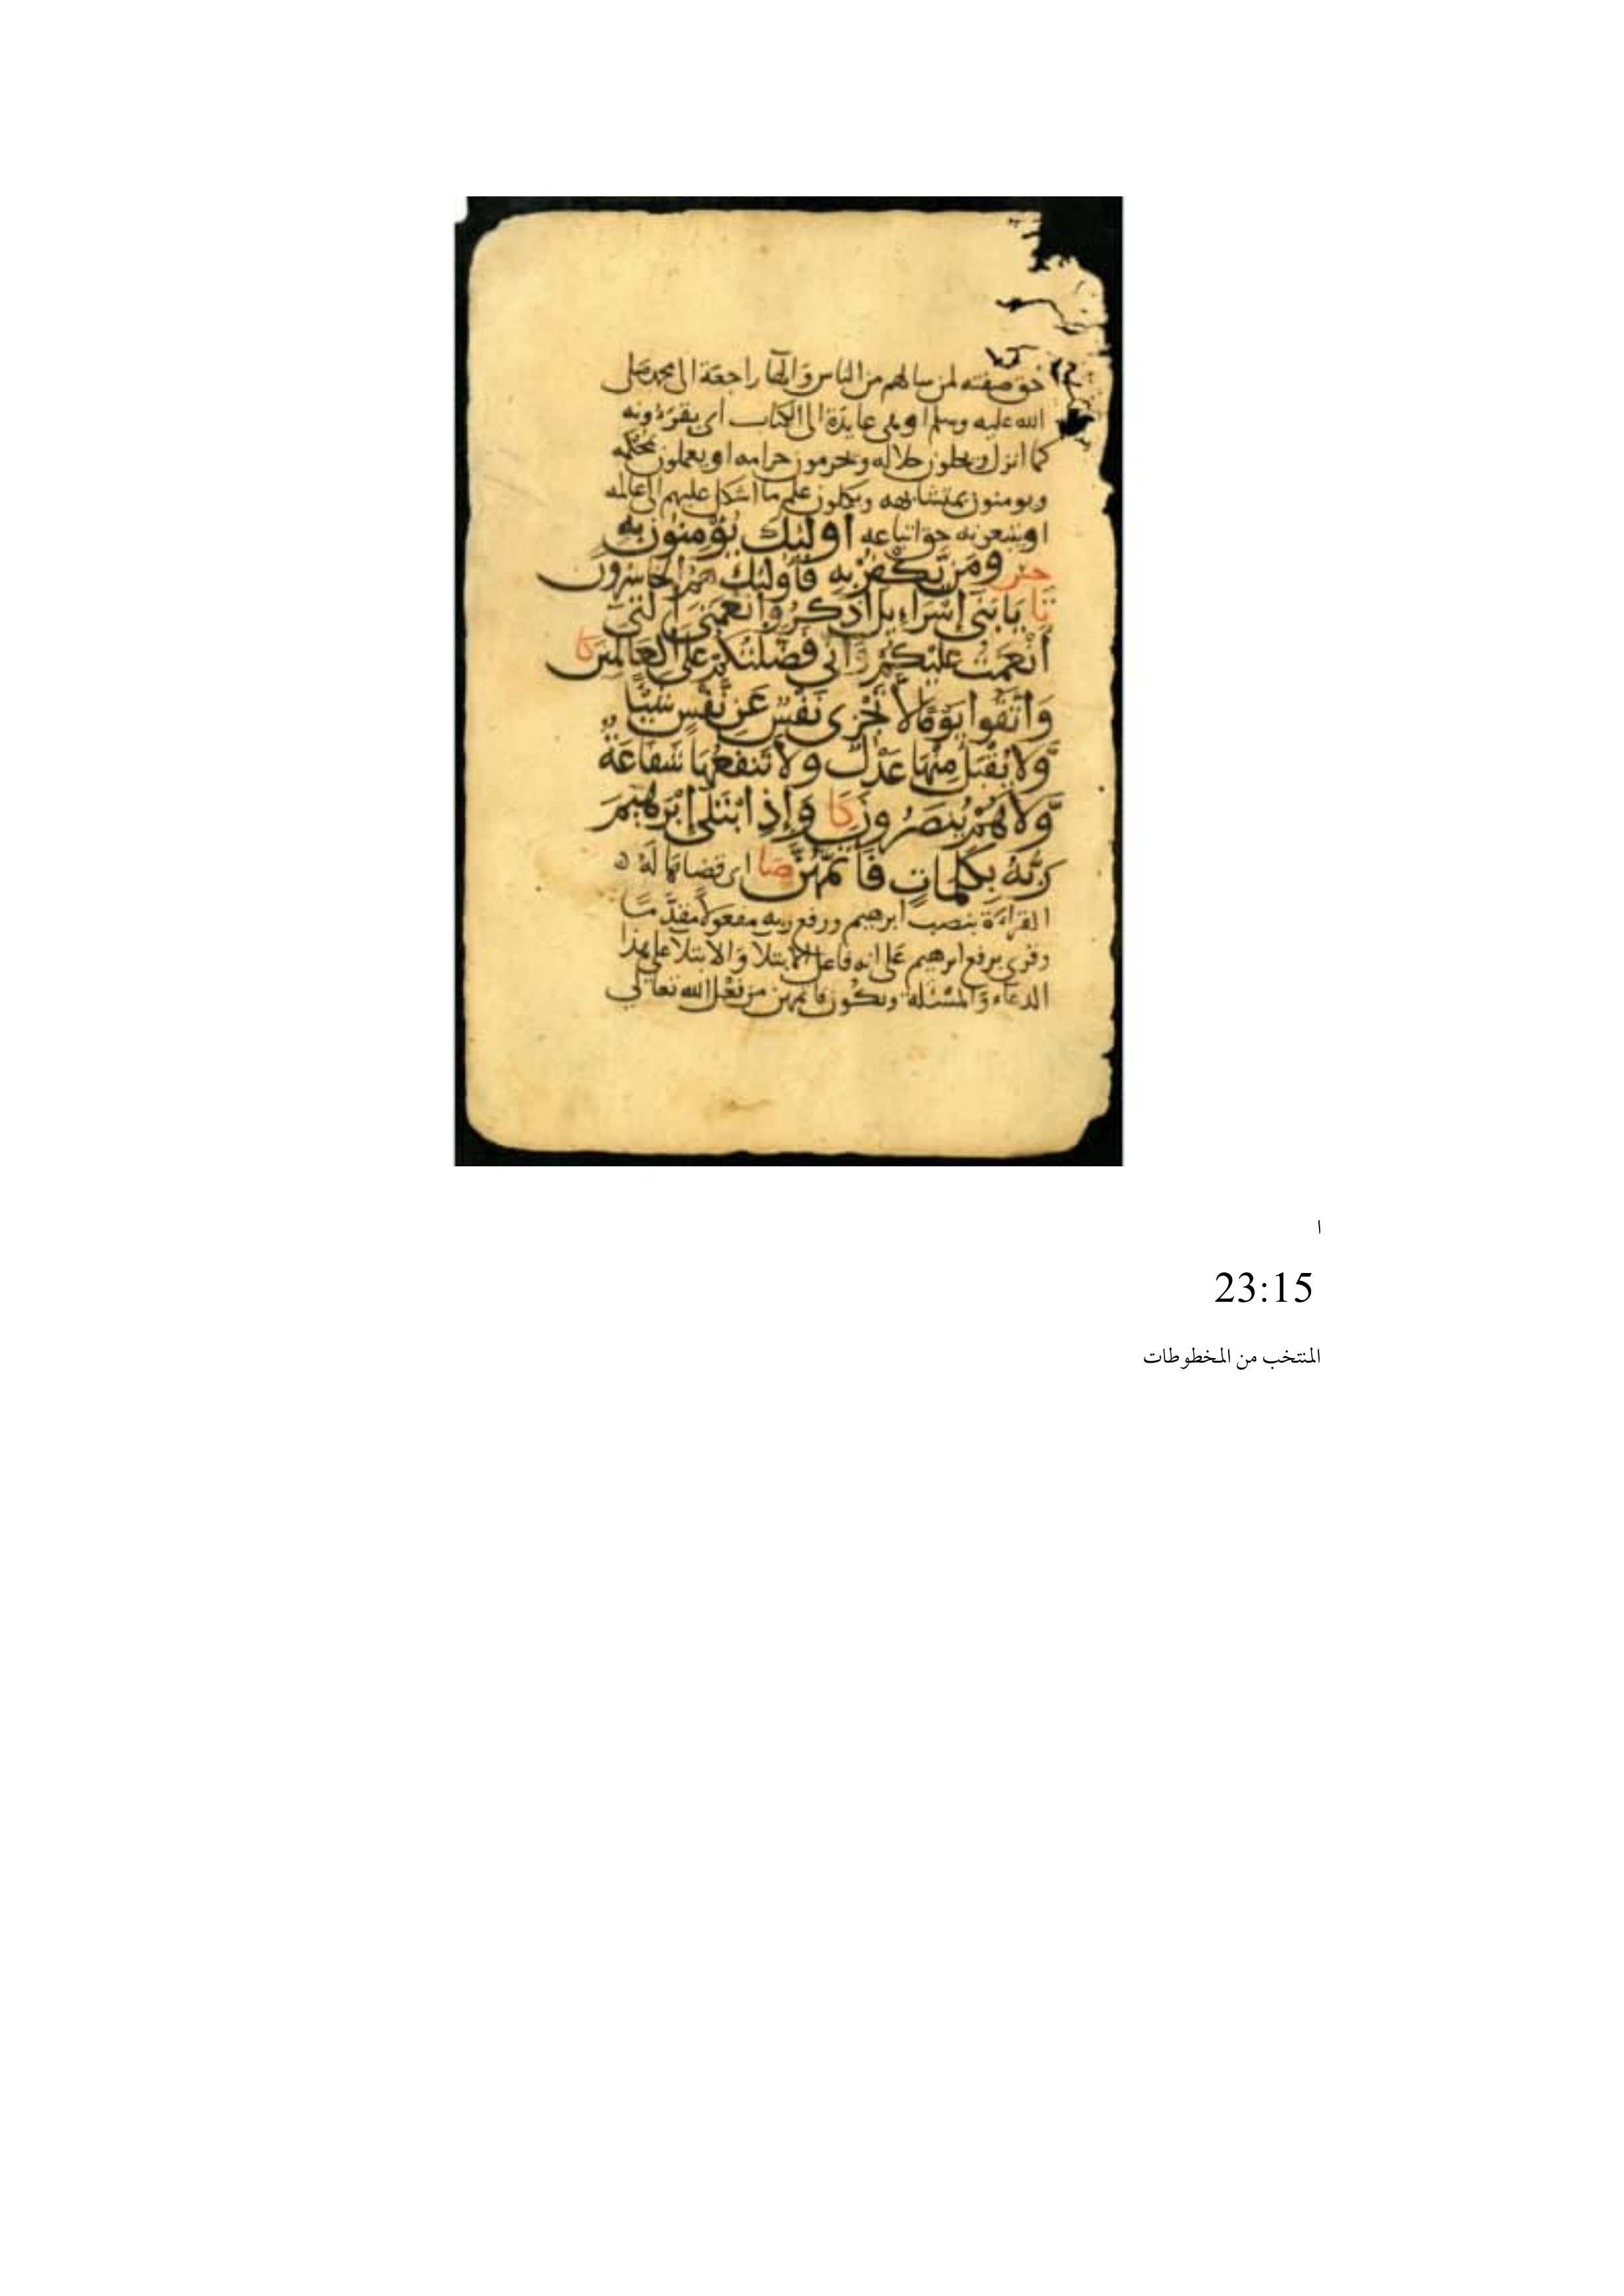 حق صفته لمن سالهم من الناس والهاء راجعة الى محمد صلى
الله عليه وسلم او هى عايدة الى الكتاب اى يقرءونه
كما انزل ويحلون حلاله ويحرمون حرامه او يعملون بمحكمه
ويومنون بمتشابهه ويكلون علم ما اشكل عليهم الى عالمه
او يتبعونه حق اتباعه اولئك يُؤمِنُون بِهِ
ومَن يَكفُر بِهِ فَأُولئِك هُمُ الخَاسِرُون
يَا بَنِى إِسْرَاءِيل اذكُرُوا نِعْمَتِى الَّتِى
أَنْعَمْتُ عَلَيْكُمْ وَأَنِّى فَضَّلْتُكُمْ عَلَى العَالَمِينَ كا
وَاتَّقُوا يَوْمًا لَا تَجْزِى نَفْسٌ عَن نَّفْسٍ شَيْئًا
وَّلَا يُقْبَلُ مِنْهَا عَدْلٌ وَلَا تَنفَعُهَا شَفَاعَةٌ
وَّلَا هُمْ يُنصَرُونَ كا وَإِذِ ابْتَلَى إِبْرَهِيمَ
رَبُّهُ بِكَلِمَاتٍ فَأَتَمَّهُنَّ صا اى قضاها له
القراءة بنصب ابرهيم ورفع ربه مفعولا مقدما
وقرى برفع ابرهيم على انه فاعل الابتلا والابتلا على هذا
الدعاء والمسئلة ويكون فاتمهن من فعل الله تعالى
ا
23:15
المنتخب من المخطوطات